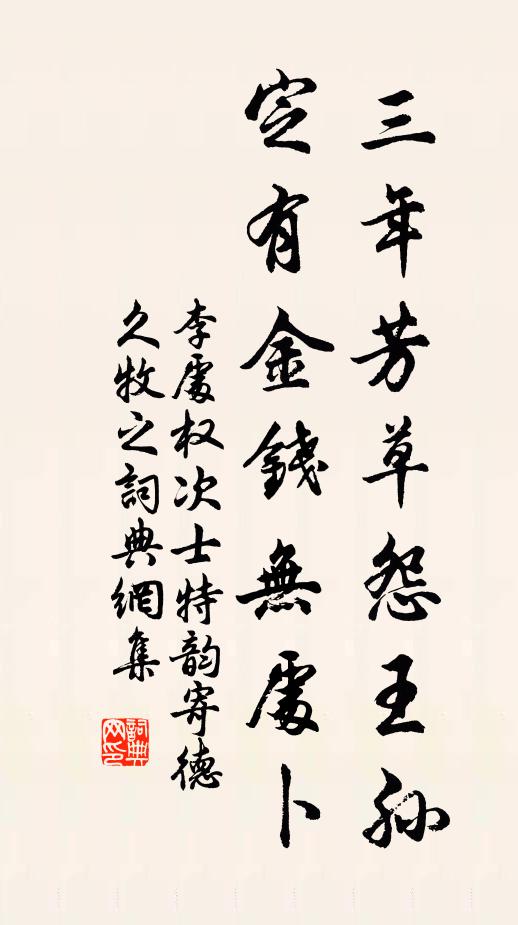 三年芳草怨王孙
定有金錢無處卜
李處权次士特韵寄德
久牧之詞典網集
詞典网印